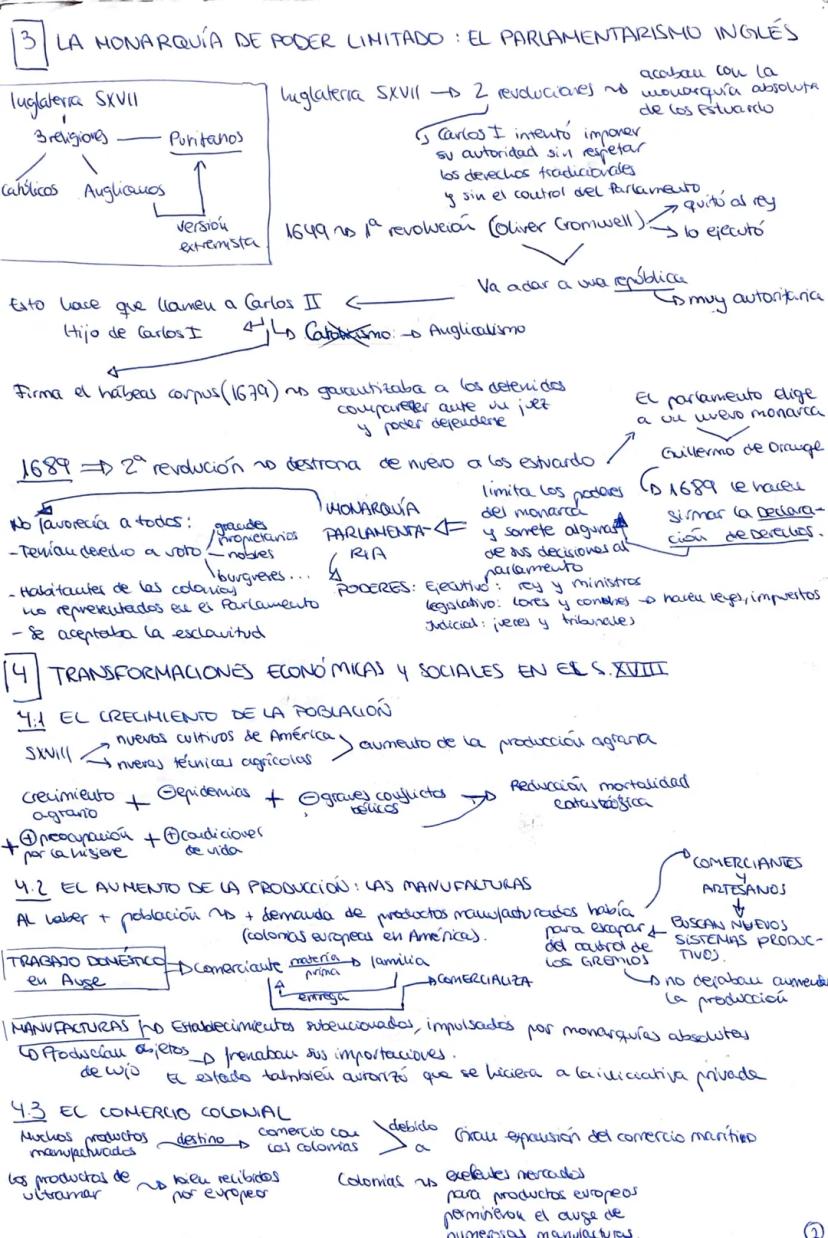 3 LA MONARQUÍA DE PODER LIMITADO: EL PARLAMENTARISMO INGLÉS
Inglaterra SXVII
3 religiones — Puritanos
Católicos Anglicanos
versión
extremista
Inglaterra SXVII → 2 revoluciones
acaban con la
monarquía absoluta
de los Estuardo
Carlos I intentó imponer
su autoridad sin respetar
los derechos tradicionales
y sin el control del Parlamento
1649 1ª revolución (Oliver Cromwell)
quitó al rey
lo ejecutó
Va a dar a una república
muy autoritaria
Esto hace que llamen a Carlos II
Hijo de Carlos I
Catolicismo → Anglicalismo
Firma el hábeas corpus (1679) garantizaba a los detenidos
comparecer ante un juez
y poder defenderse
1689 ⇒ 2ª revolución destrona de nuevo a los estuardo
El parlamento elige
a un nuevo monarca
Guillermo de Orange
1689 le hacen
firmar la Declara-
ción de Derechos.
limita los poderes
del monarca
y somete algunas
de sus decisiones al
parlamento
MONARQUÍA
PARLAMENTA-
RIA
No favorecía a todos:
- Tenían derecho a voto
grandes
propietarios
nobles
burgueses...
- Habitantes de las colonias
no representados en el Parlamento
- Se aceptaba la esclavitud
PODERES: Ejecutivo: rey y ministros
legislativo: lores y comunes → hacen leyes, impuestos
Judicial: jueces y tribunales
4 TRANSFORMACIONES ECONÓMICAS Y SOCIALES EN EL S.XVIII
4.1 EL CRECIMIENTO DE LA POBLACIÓN
SXVIII
nuevos cultivos de América
nuevas técnicas agrícolas
aumento de la producción agraria
crecimiento
agrario
+ ⊖epidemias + ⊖graves conflictos
bélicos
→ Reducción mortalidad
catastrófica
+ ⊕preocupación
por la higiene
+ ⊕condiciones
de vida
4.2 EL AUMENTO DE LA PRODUCCIÓN: LAS MANUFACTURAS
Al haber + población + demanda de productos manufacturados había
(colonias europeas en América).
COMERCIANTES
Y
ARTESANOS
BUSCAN NUEVOS
SISTEMAS PRODUC-
TIVOS.
para escapar
del control de
los GREMIOS
no dejaban aumentar
la producción
TRABAJO DOMÉSTICO
en Auge
Comerciante materia
prima
→ familia
entrega
COMERCIALIZA
MANUFACTURAS Establecimientos subencionados, impulsados por monarquías absolutas
Producían objetos
de lujo
→ frenaban sus importaciones.
El estado también autorizó que se hiciera a la iniciativa privada
4.3 EL COMERCIO COLONIAL
Muchos productos
manufacturados
destino
comercio con
las colonias
debido
a
Gran expansión del comercio marítimo
los productos de
ultramar
bien recibidos
por europeos
Colonias
excelentes mercados
para productos europeos
permitieron el auge de
numerosas manufacturas.
2